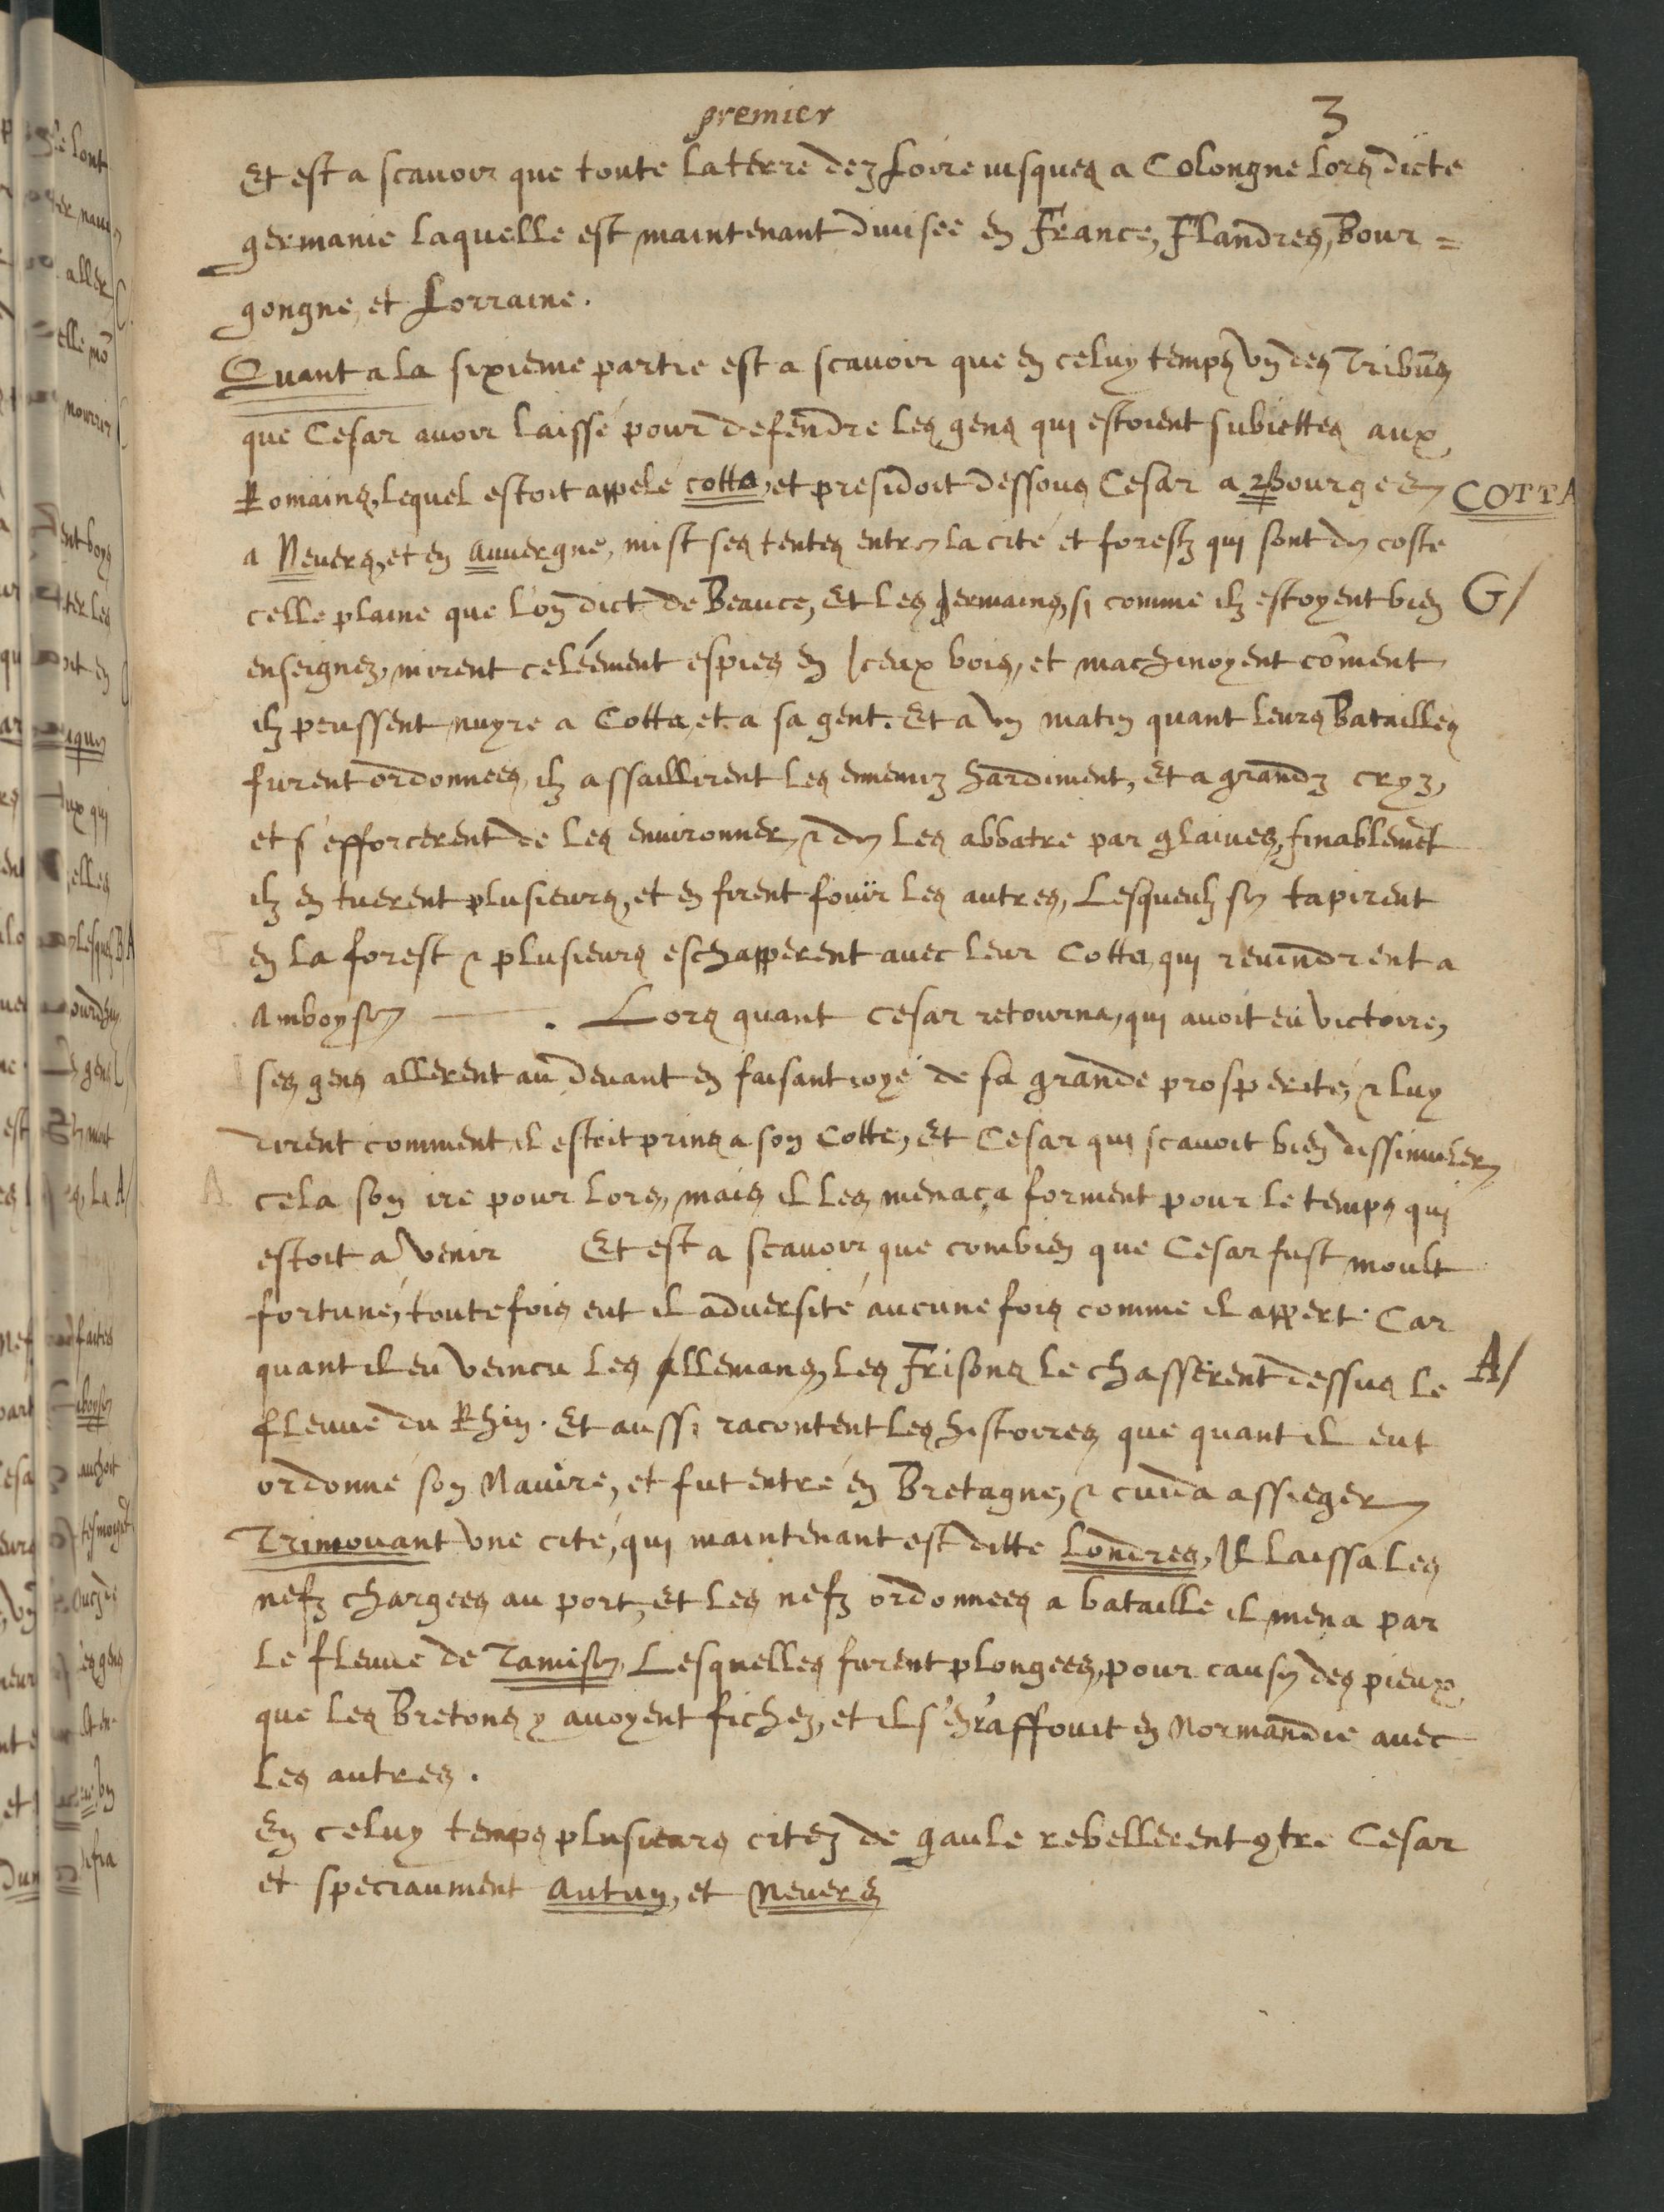 premier 3
Et est a scavoir que toute la terre dez Loire iusques a Colongne lors dicte
germanie laquelle est maintenant diuisee en France, Flandres, Bour=
gongne, et Lorraine.
Quant a la sixieme partie est a scavoir que en celuy temps vn des Tribuns
que Cesar auoir laissé pour defendre les gens qui estoient subiettes aux
Romains, lequel estoit appelé cotta, et presidoit dessous Cesar a Bourges COTTA
a Neuers, et en Auuergne, mist ses tentes entre la cité et forestz qui sont de coste
celle plaine que l'on dict de Beauce, Et les germains, si comme ilz estoyent bien G/
enseignez, mirent celéement espies en Iceux bois, et machinoyent coment
ilz peussent nuyre a Cotta, et a sa gent. Et a vn matin quant leurs Batailles
furent ordonnees, ilz assaillirent les ennemiz hardiment, Et a grandz cryz,
et s'efforcerent de les enuironner, & de les abbatre par glaiues, finablemet
ilz en tuerent plusieurs, et en firent fouïr les autres, Lesquelz se tapirent
en la forest & plusieurs eschapperent auec leur Cotta, qui reuindrent a
Amboyse. Lors quant Cesar retourna, qui auoit eu victoire,
ses gens allerent au deuant en faisant ioye de sa grande prosperité, & luy
dirent comment il estoit prins a son Cotte, Et Cesar qui scauoit bien dissimuler
cela son ire pour lors, mais il les menaça forment pour le temps qui
estoit a venir Et est a scauoir que combien que Cesar fust moult
fortuné, toutefois eut il aduersité aucunefois comme il appert. Car
quant il eu veincu les Allemans, les Frisons le chasserent dessus le A/
fleuue du Rhin. Et aussi racontent les histoires que quant il eut
ordonné son Nauire, et fut entré en Bretagne, & cuida assieger
Trimouant vne cité, qui maintenant est ditte Londres, Il laissa les
nefz chargees au port, Et les nefz ordonnees a bataille il mena par
le fleuue de Tamise, Lesquelles furent plongees, pour cause des pieux
que les Bretons y auoyent fichez, et il s'en raffouit en Normandie auec
les autres.
En celuy temps plusieurs citez de gaule rebellerent 9tre Cesar
et speciaument Autun, et Neuers